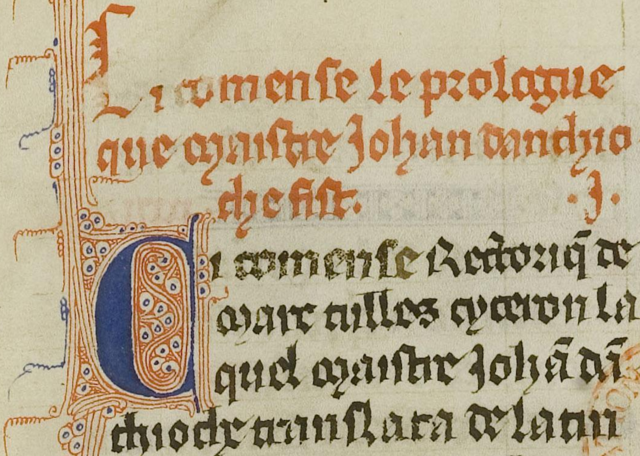 Ci comense le prologue
que maistre Johan danthio
che fist. .J.
Ci comense Rectoriq̃ de
marc tulles cyceron la
quel maistre Johã dã
thioche translata de latin